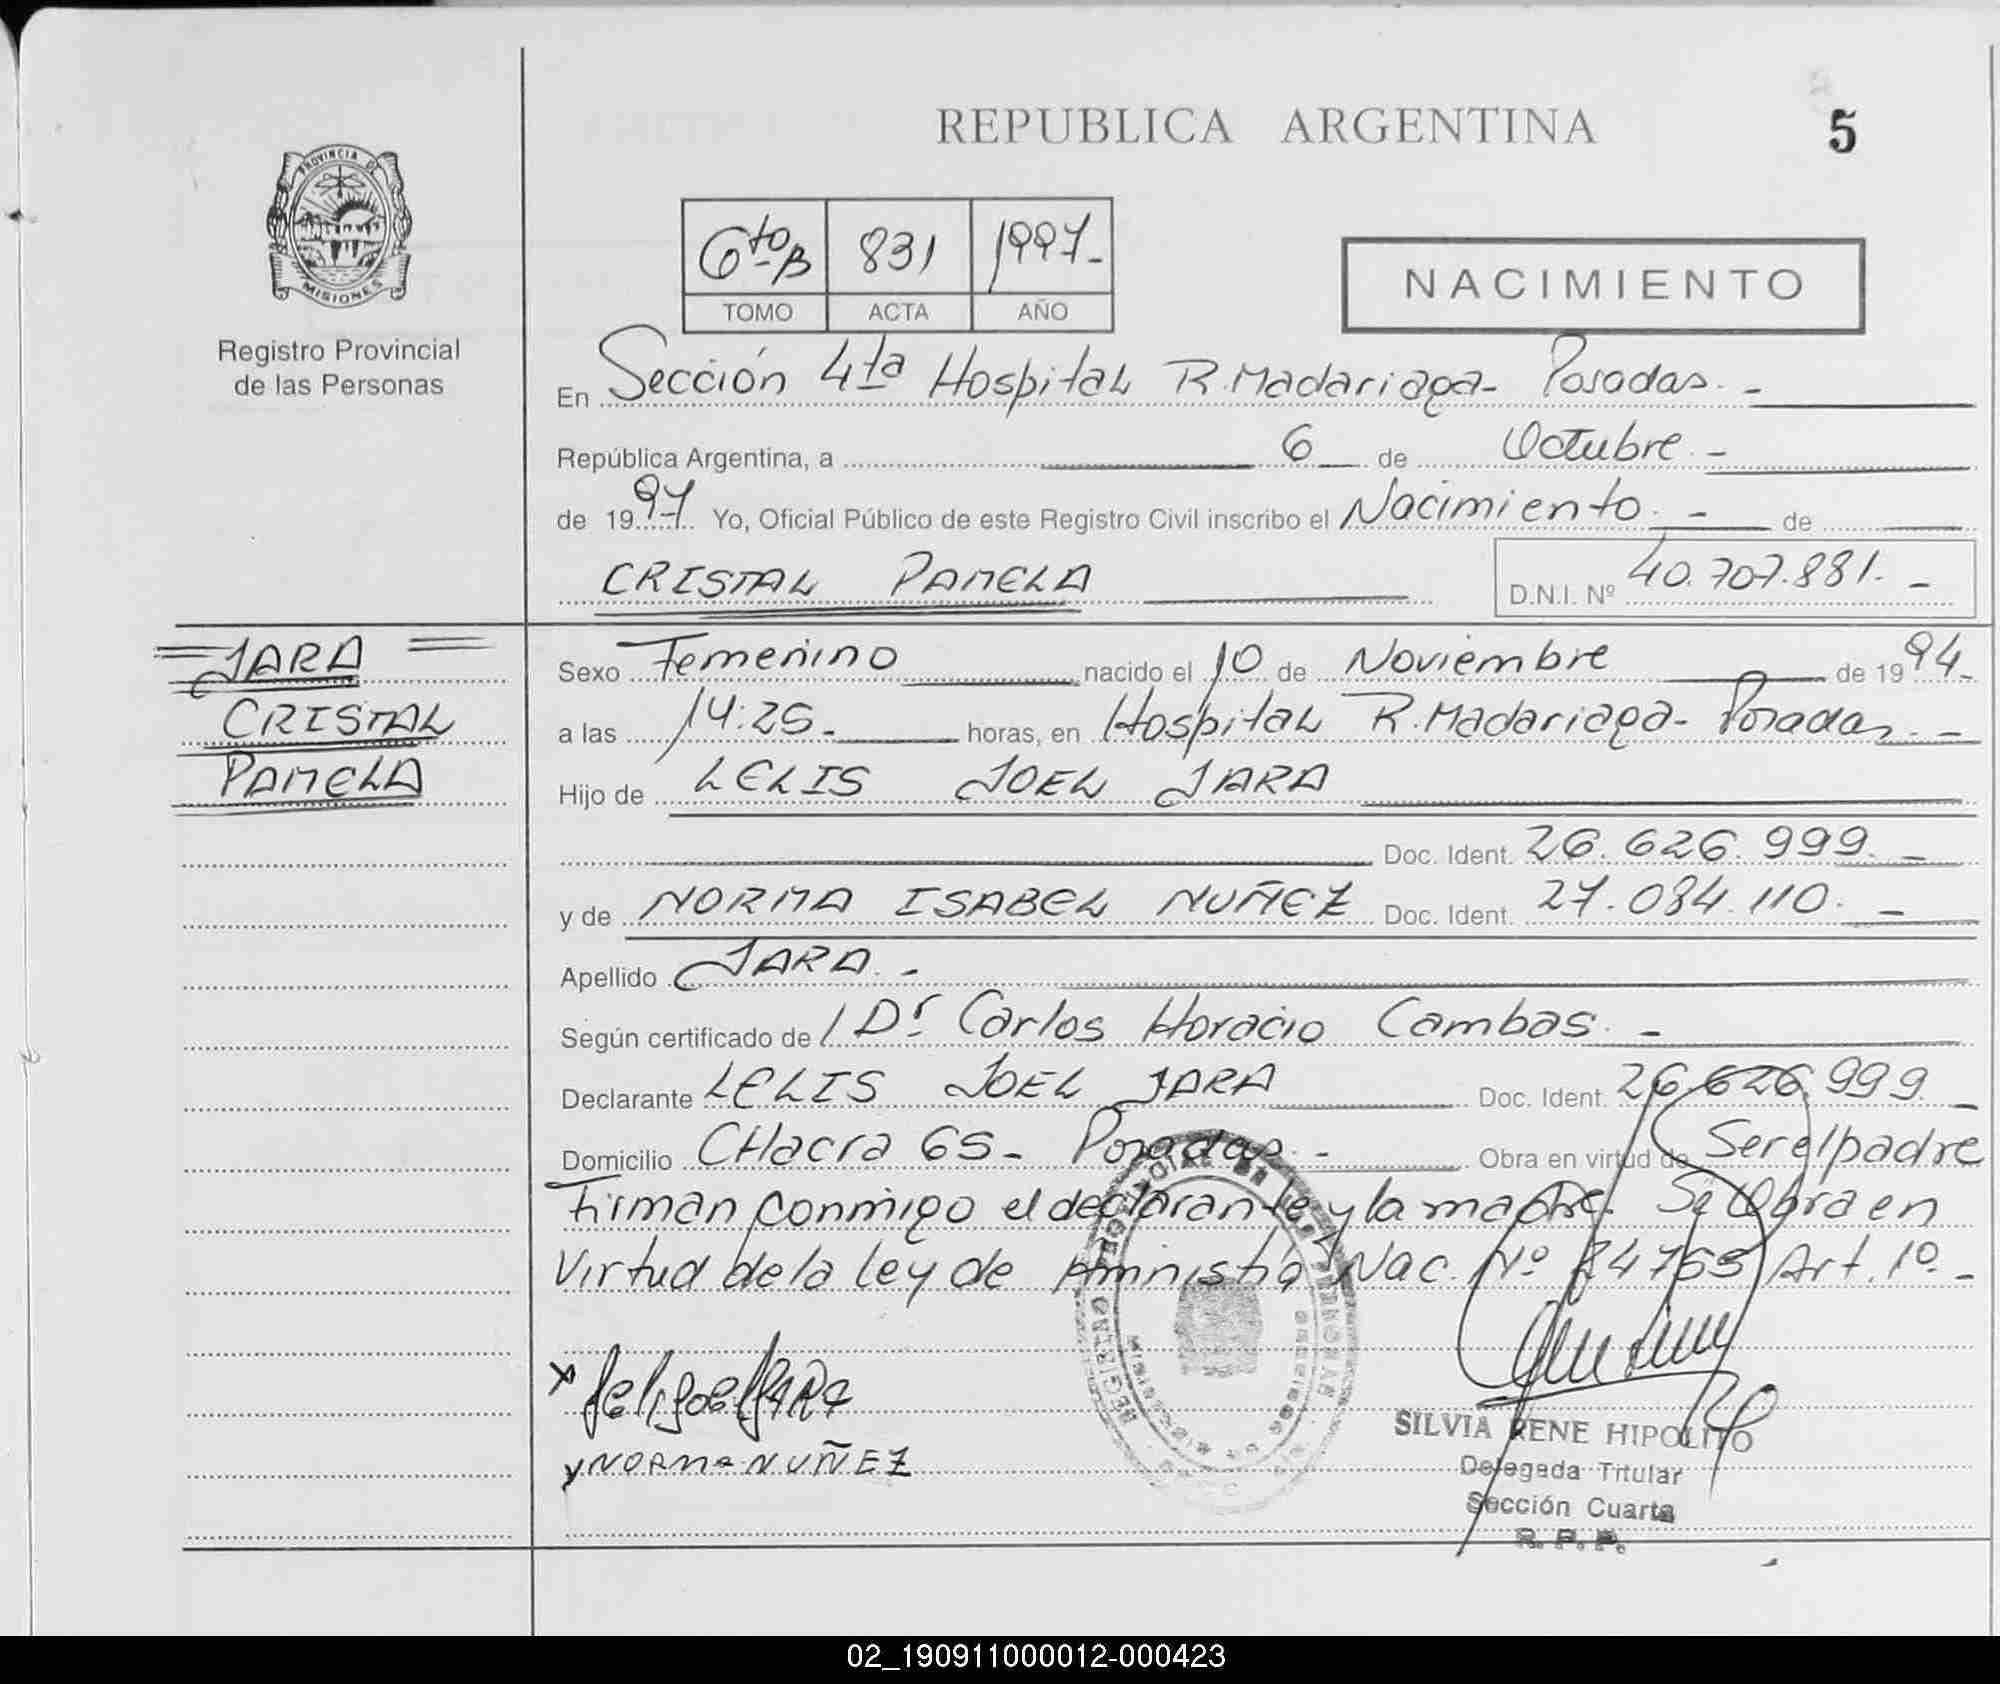 REPUBLICA ARGENTINA
5
PROVINCIA DE
MISIONES
Registro Provincial
de las Personas
6to B 831 1997.-
TOMO ACTA AÑO
NACIMIENTO
En Sección 4ta Hospital R. Madariaga- Posadas.-
República Argentina, a 6 de Octubre.-
de 1997 Yo, Oficial Público de este Registro Civil inscribo el Nacimiento.- de
CRISTAL PAMELA
D.N.I. Nº 40.707.881.-
JARA
CRISTAL
PAMELA
Sexo Femenino nacido el 10 de Noviembre de 1994.-
a las 14:25.- horas, en Hospital R. Madariaga- Posadas.-
Hijo de LELIS JOEL JARA
Doc. Ident. 26.626.999.-
y de NORMA ISABEL NUÑEZ Doc. Ident. 27.084.110.-
Apellido JARA.-
Según certificado de Dr Carlos Horacio Cambas.-
Declarante LELIS JOEL JARA Doc. Ident. 26.626.999.-
Domicilio CHacra 65- Posadas.- Obra en virtud de Ser el padre
Firman conmigo el declarante y la madre. Se Obra en
Virtud de la ley de Aministia Nac. Nº 24755 Art. 1º.-
x Lelis Joel JARA
x NORMA NUÑEZ
SILVIA RENE HIPOLITO
Delegada Titular
Sección Cuarta
R. P. P.
02_190911000012-000423